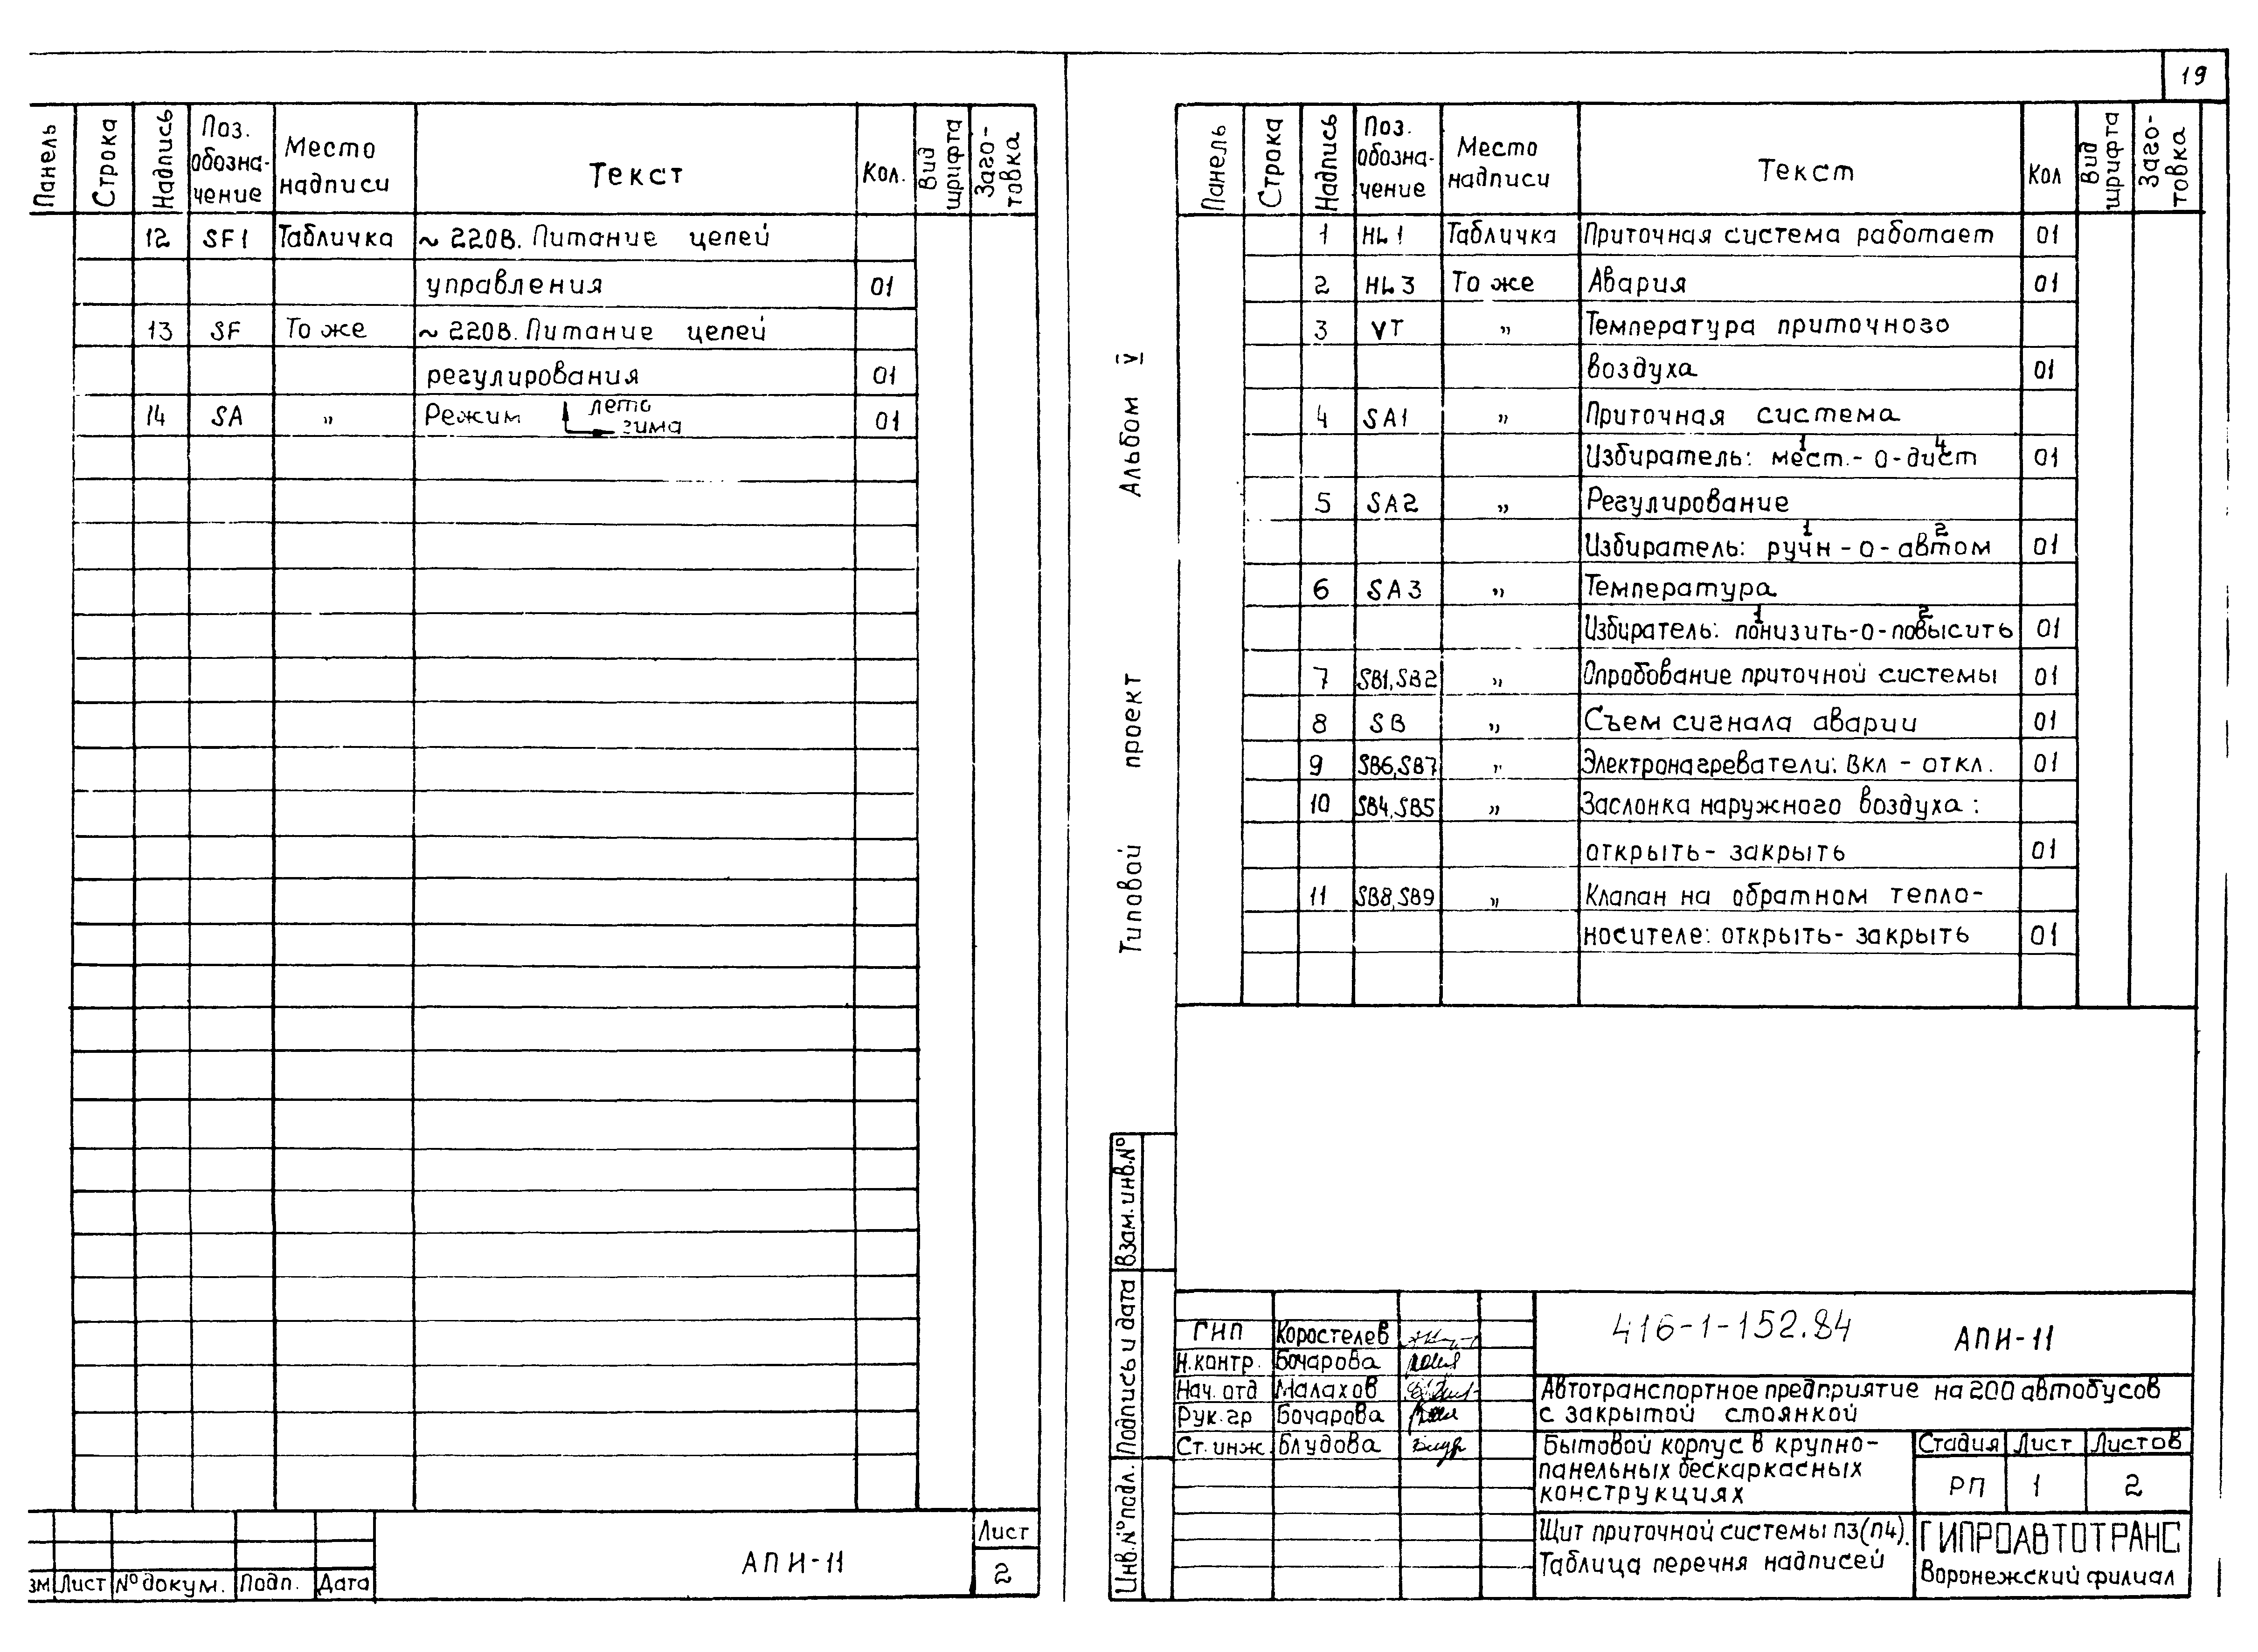 19
Панель Строка Надпись Поз. обозна-чение Место надписи Текст Кол. Вид шрифта Заго-товка
12 SF1 Табличка ~ 220В. Питание цепей
управления 01
13 SF То же ~ 220В. Питание цепей
регулирования 01
14 SA " Режим лето зима 01
зм Лист № докум. Подп. Дата
АПИ-11
Лист
2
Типовой проект Альбом V
Панель Строка Надпись Поз. обозна-чение Место надписи Текст Кол Вид шрифта Заго-товка
1 HL1 Табличка Приточная система работает 01
2 HL3 То же Авария 01
3 VT " Температура приточного
воздуха 01
4 SA1 " Приточная система
1 4
Избиратель: мест.-о-дист 01
5 SA2 " Регулирование
1 2
Избиратель: ручн-о-автом 01
6 SA3 " Температура
1 2
Избиратель: понизить-о-повысить 01
7 SB1,SB2 " Опробование приточной системы 01
8 SB " Съем сигнала аварии 01
9 SB6,SB7 " Электронагреватели: вкл - откл. 01
10 SB4,SB5 " Заслонка наружного воздуха:
открыть-закрыть 01
11 SB8,SB9 " Клапан на обратном тепло-
носителе: открыть-закрыть 01
Инв.№ подл. Подпись и дата Взам.инв.№
ГИП Коростелев
Н.контр. Бочарова
Нач. отд Малахов
Рук.гр Бочарова
Ст.инж. Блудова
416-1-152.84 АПИ-11
Автотранспортное предприятие на 200 автобусов
с закрытой стоянкой
Бытовой корпус в крупно-
панельных бескаркасных
конструкциях
Стадия Лист Листов
РП 1 2
Щит приточной системы П3(П4).
Таблица перечня надписей
ГИПРОАВТОТРАНС
Воронежский филиал